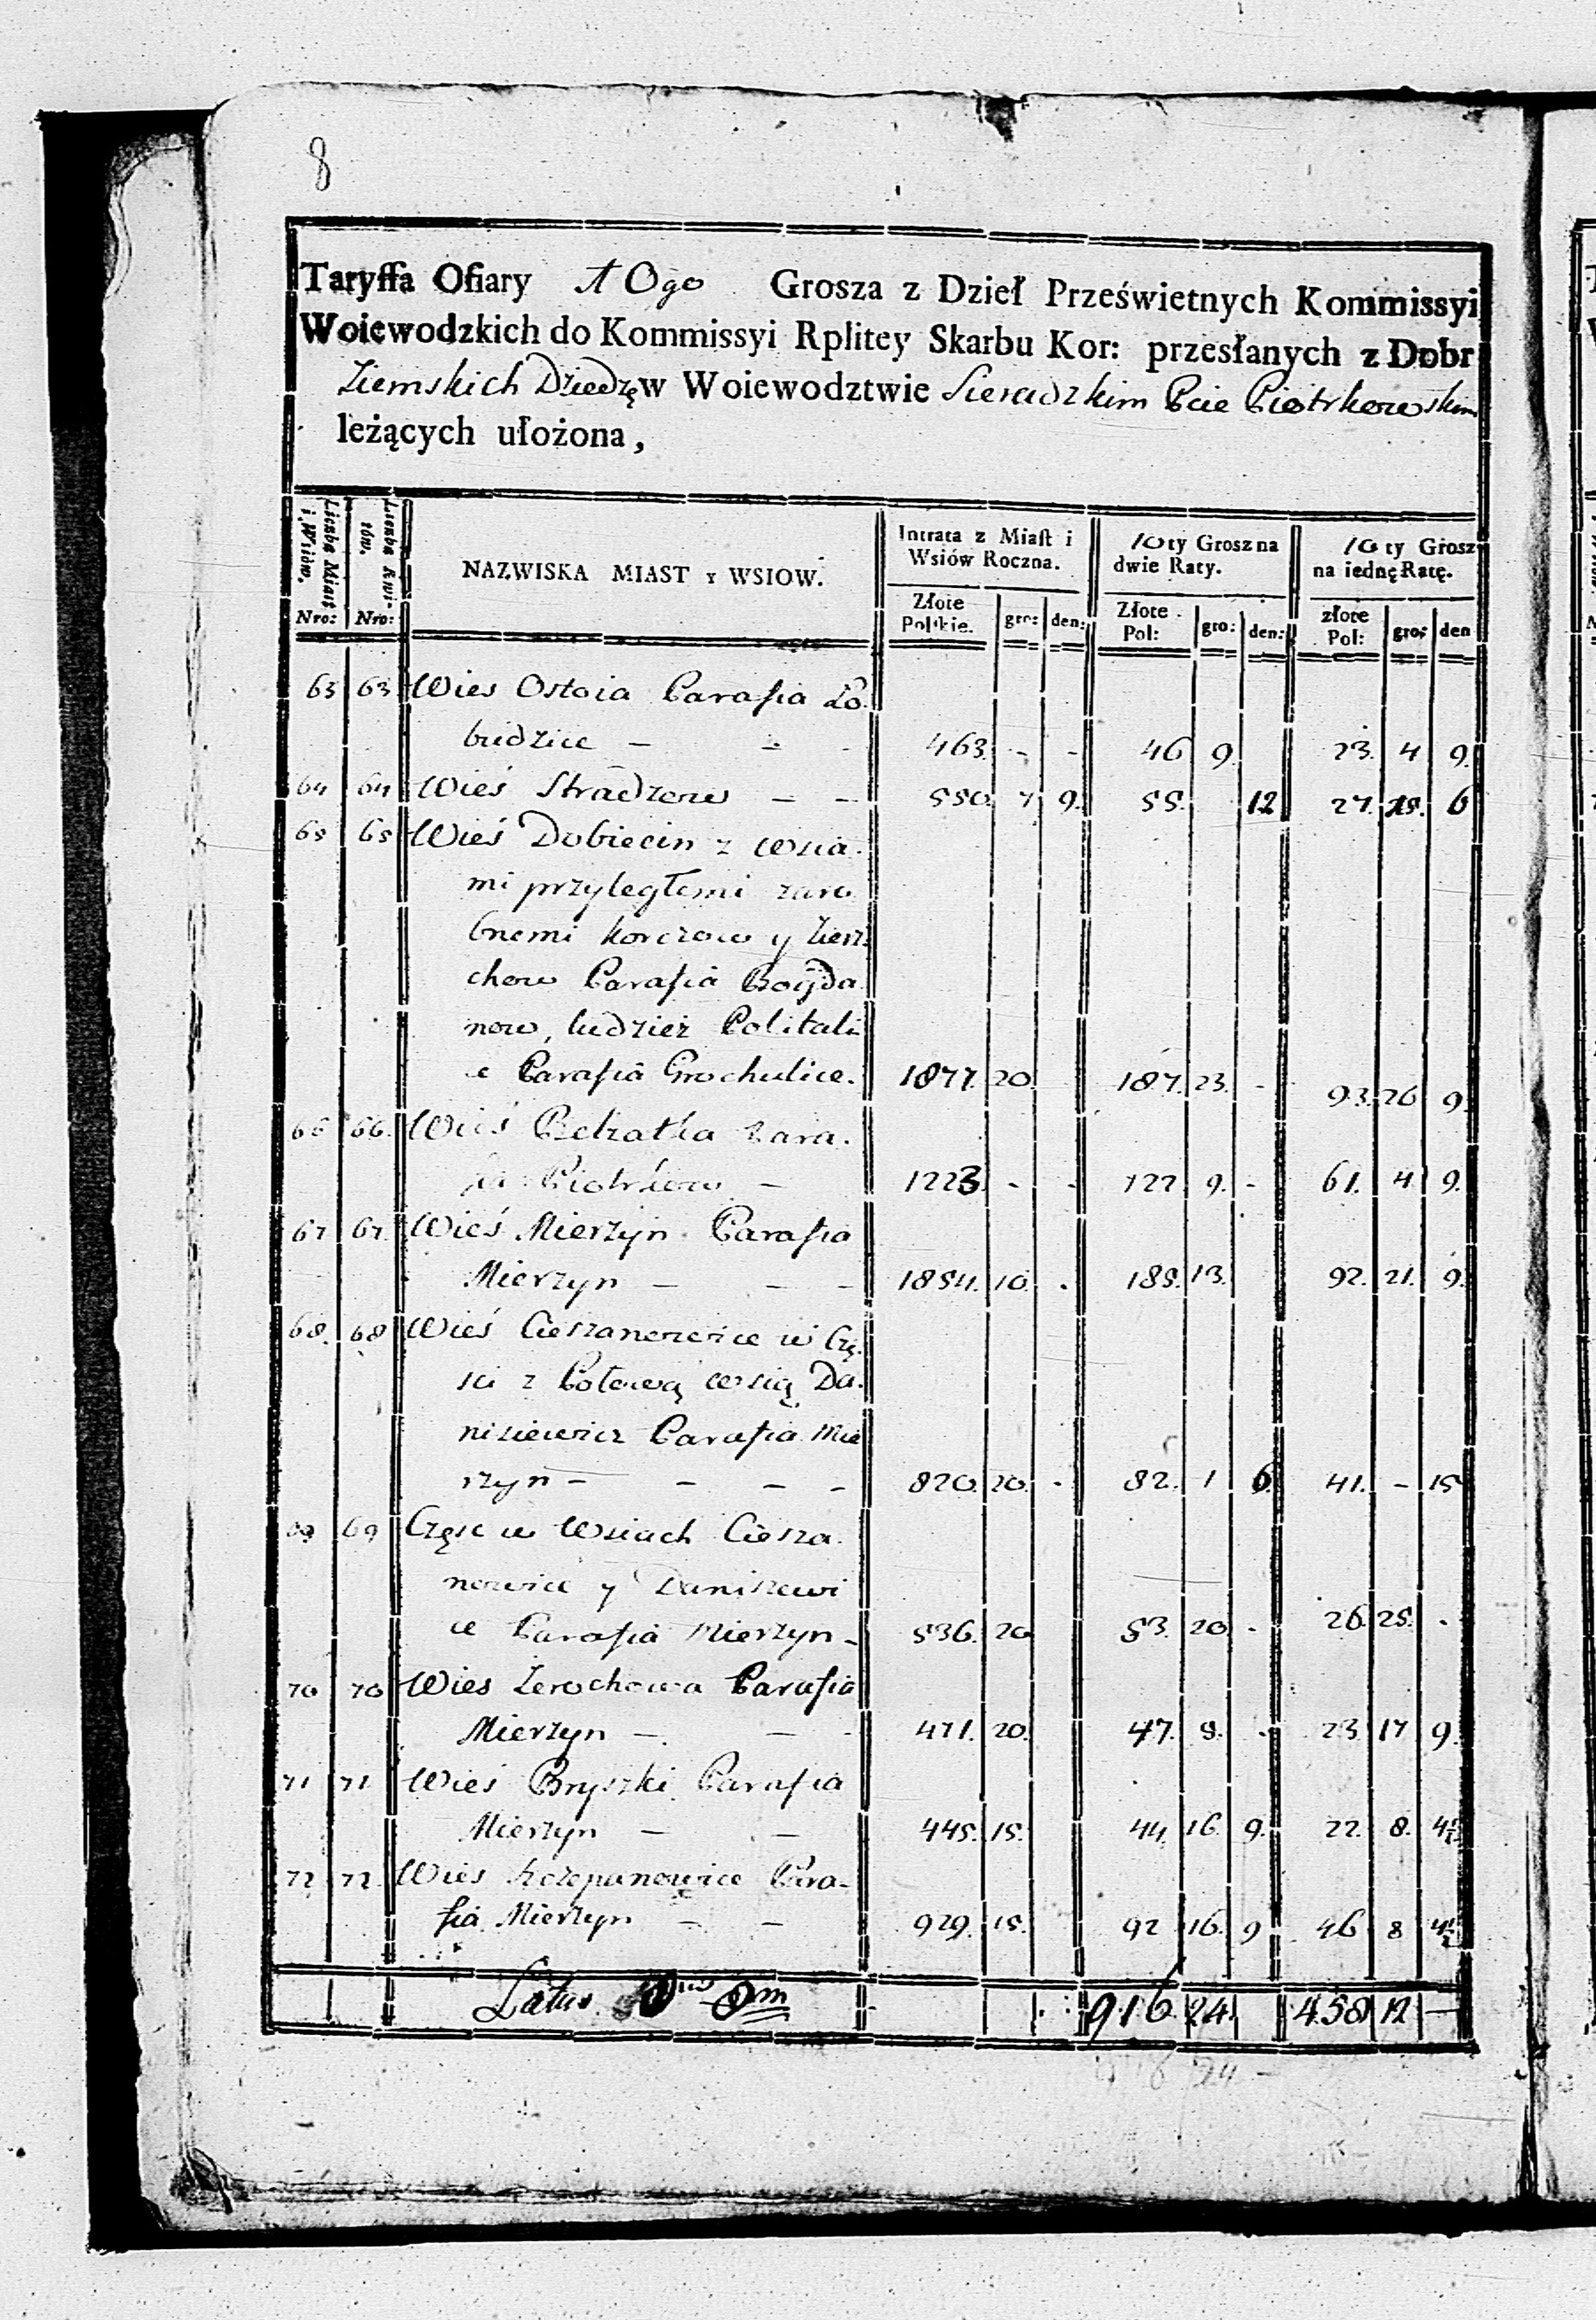 8
Taryffa Ofiary 10go Grosza z Dzieł Prześwietnych Kommissyi
Woiewodzkich do Kommissyi Rplitey Skarbu Kor: przesłanych z Dobr
Ziemskich Dziedz w Woiewodztwie Sieradzkim Pcie Piotrkowskim
leżących ułożona,
Liczba Miast i Wsiów. Nro: Liczba Kwi-tów. Nro: NAZWISKA MIAST y WSIOW. Intrata z Miast i Wsiów Roczna. 10ty Grosz na dwie Raty. 10ty Grosz na iednę Ratę.
Złote Polskie. gro: den: Złote Pol: gro: den: złote Pol: gro: den
63 63 Wies Ostoia Parafia Ło
budzice – - - 463. - - 46 9. 23. 4 9.
64 64 Wieś Stradzow – – 550. 7 9. 55. 12 27. 15. 6
65 65 Wieś Dobiecin z wsia.
mi przyległemi zaro
bnemi Korczow y Zierz
chow Parafia Bogda
now, tudzież Politali
e Parafia Grochulice. 1877. 20. 187. 23. - 93. 26 9.
66 66. Wieś Belzatka Para.
fia Piotrkow – 1223. - - 122 9. - 61. 4 9.
67 67. Wieś Mierzyn Parafia
Mierzyn – – – 1854. 10. . 185. 13. 92. 21. 9.
68. 68 Wieś Cieszanowice w Czę.
sci z Połową wsią Da.
nisiewicz Parafia Mie
rzyn – – – – 820. 20. . 82. 1 6. 41. – 15
69 69 Częsc w Wsiach Ciesza.
nowice y Daniszewi
ce Parafia Mierzyn – 536. 20 53. 20 - 26. 25. .
70 70 Wies Zerochowa Parafia
Mierzyn – – - 471. 20. 47. 5. - 23 17 9.
71 71 Wieś Bryszki Parafia
Mierzyn – – 445. 15. 44. 16. 9. 22. 8. 4½
72 72. Wies Szczepanowice Para-
fia Mierzyn – – 929. 15. 92 16. 9 46 8 4½
Latus 916 24. 458 12 –
916 24 –